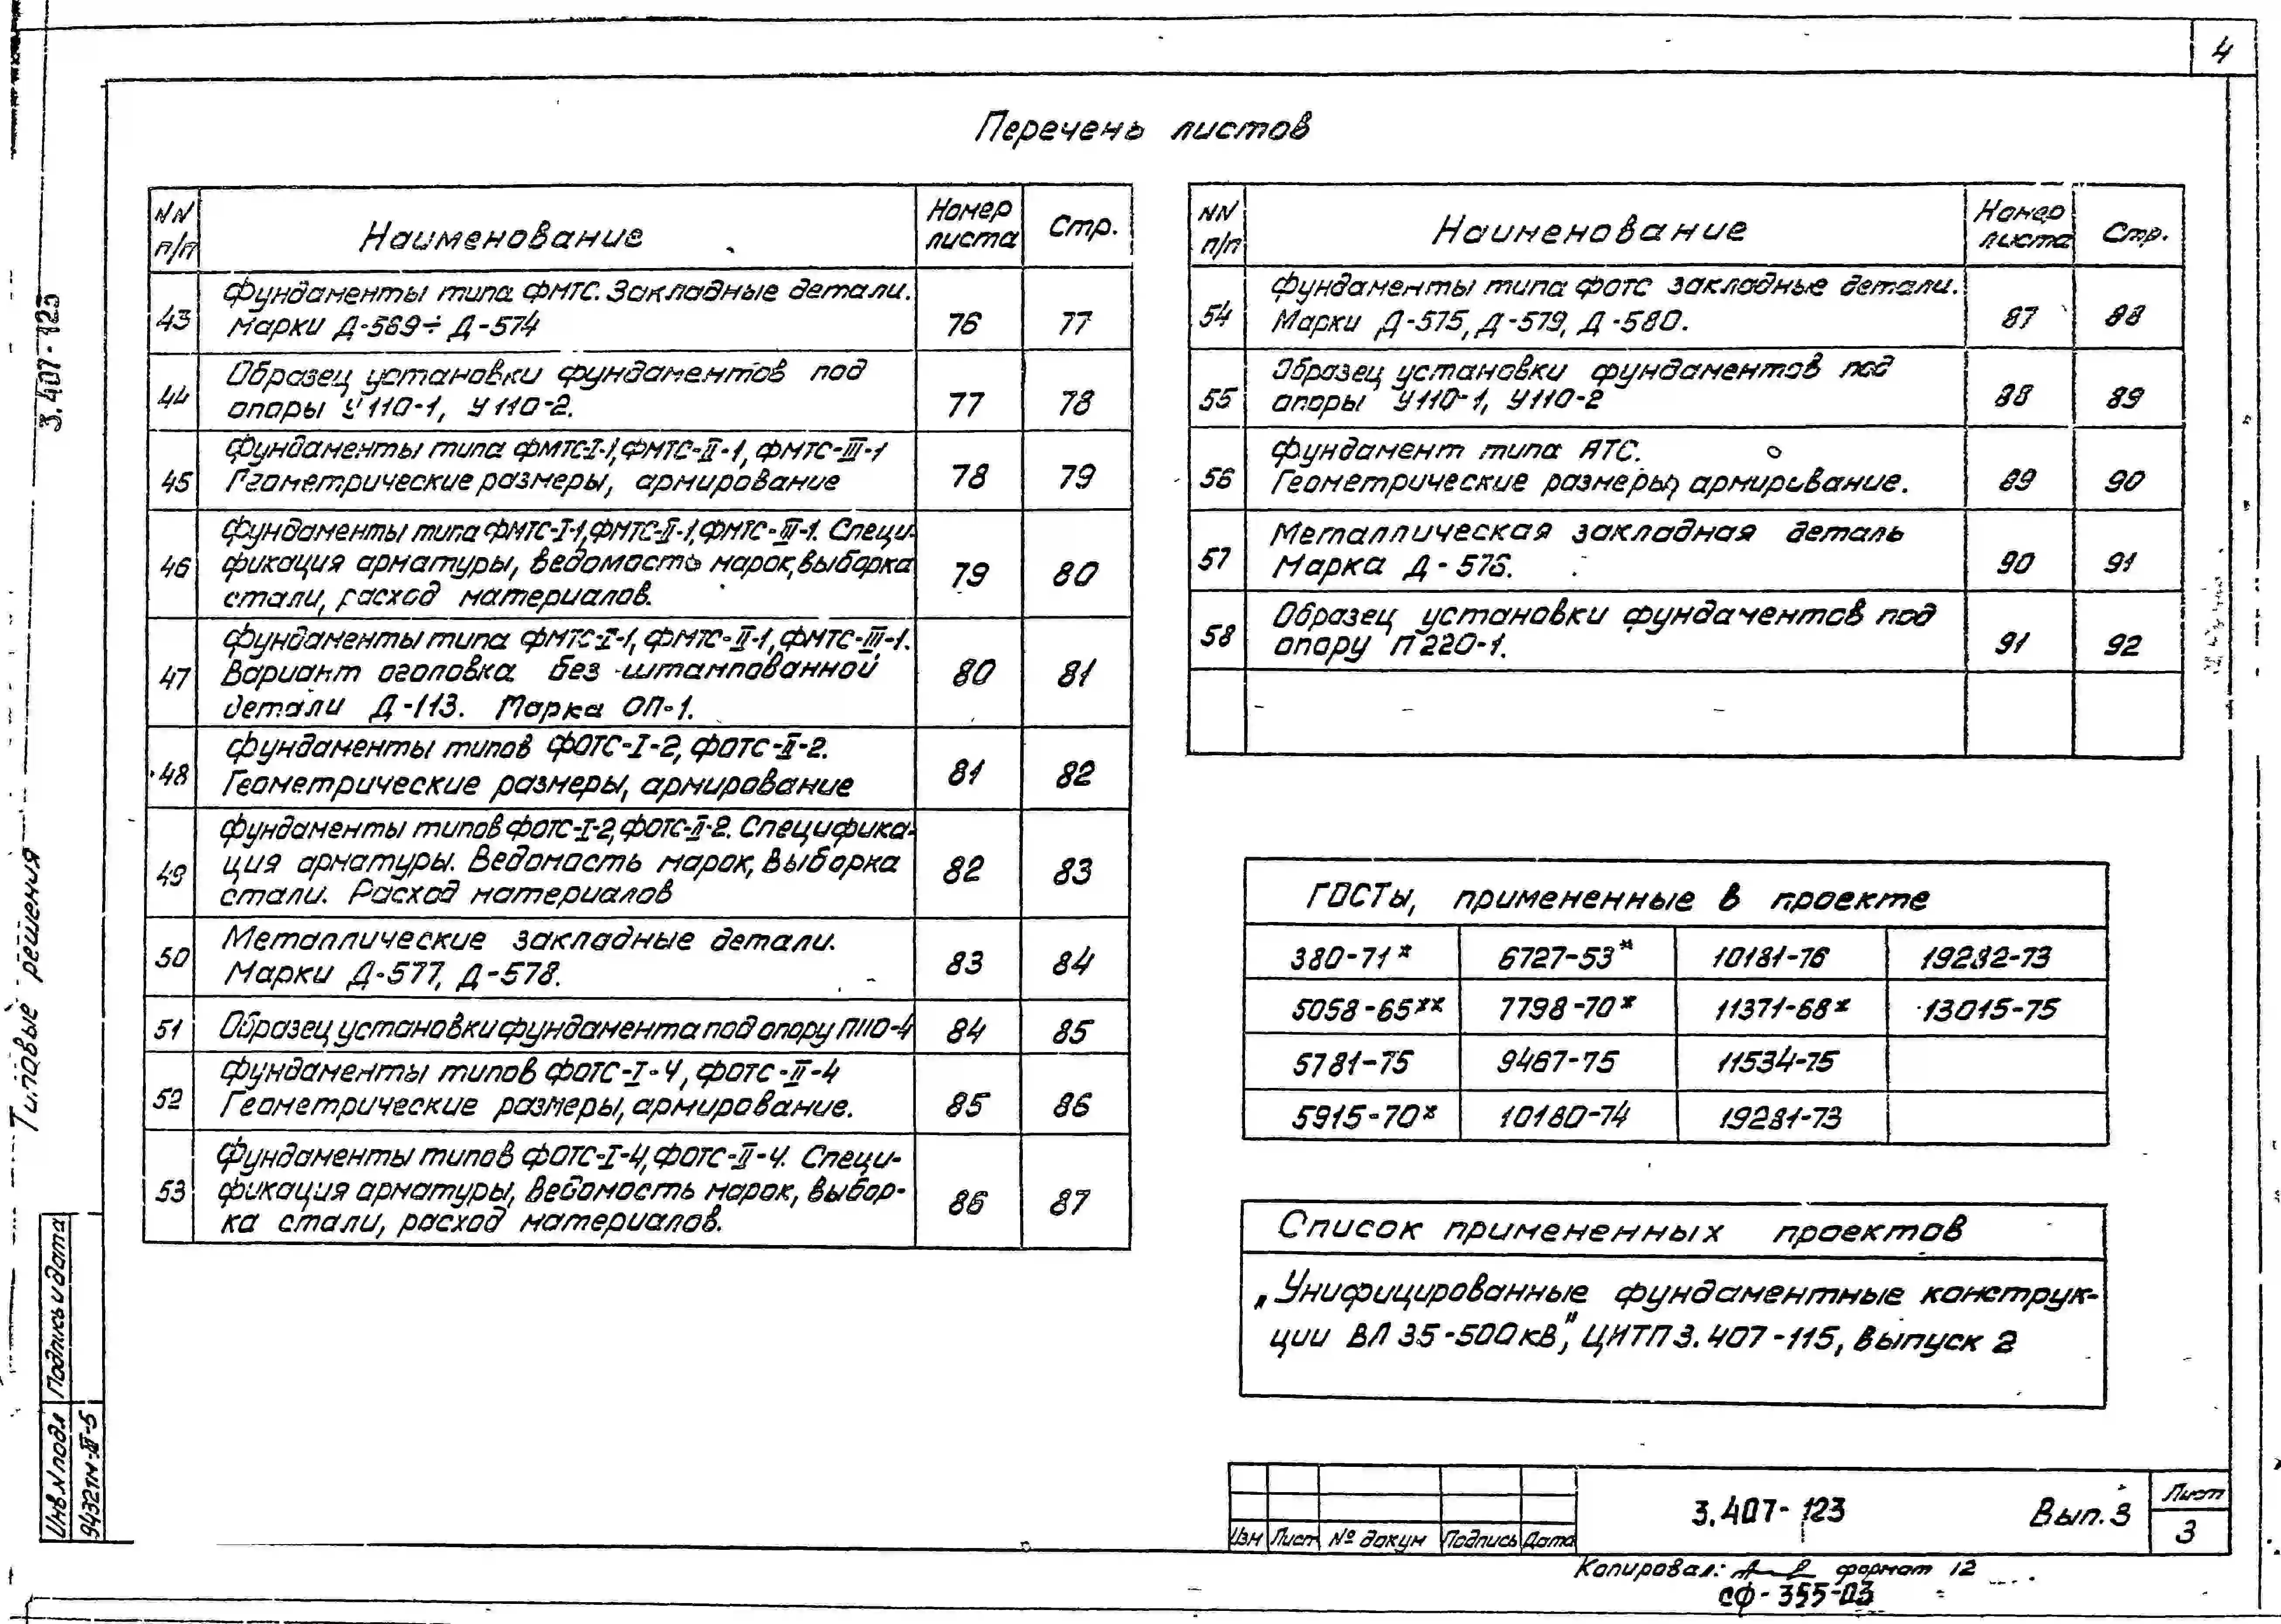 4
Перечень листов
NN п/п Наименование Номер листа Стр.
43 Фундаменты типа ФМТС. Закладные детали.
Марки Д-569÷Д-574 76 77
44 Образец установки фундаментов под
опоры У110-1, У110-2. 77 78
45 Фундаменты типа ФМТС-I-1, ФМТС-II-1, ФМТС-III-1
Геометрические размеры, армирование 78 79
46 Фундаменты типа ФМТС-I-1, ФМТС-II-1, ФМТС-III-1. Специ-
фикация арматуры, ведомость марок, выборка
стали, расход материалов. 79 80
47 Фундаменты типа ФМТС-I-1, ФМТС-II-1, ФМТС-III-1.
Вариант оголовка без штампованной
детали Д-113. Марка ОП-1. 80 81
48 Фундаменты типов ФОТС-I-2, ФОТС-II-2.
Геометрические размеры, армирование 81 82
49 Фундаменты типов ФОТС-I-2, ФОТС-II-2. Специфика-
ция арматуры. Ведомость марок, Выборка
стали. Расход материалов 82 83
50 Металлические закладные детали.
Марки Д-577, Д-578. 83 84
51 Образец установки фундамента под опору П110-4 84 85
52 Фундаменты типов ФОТС-I-4, ФОТС-II-4
Геометрические размеры, армирование. 85 86
53 Фундаменты типов ФОТС-I-4, ФОТС-II-4. Специ-
фикация арматуры, Ведомость марок, выбор-
ка стали, расход материалов. 86 87
NN п/п Наименование Номер листа Стр.
54 Фундаменты типа ФОТС закладные детали.
Марки Д-575, Д-579, Д-580. 87 88
55 Образец установки фундаментов под
опоры У110-1, У110-2 88 89
56 Фундамент типа АТС.
Геометрические размеры, армирование. 89 90
57 Металлическая закладная деталь
Марка Д-576. 90 91
58 Образец установки фундаментов под
опору П220-1. 91 92
ГОСТы, примененные в проекте
380-71* 6727-53* 10181-76 19282-73
5058-65** 7798-70* 11371-68* 13015-75
5781-75 9467-75 11534-75
5915-70* 10180-74 19281-73
Список примененных проектов
„Унифицированные фундаментные конструк-
ции ВЛ 35-500кВ", ЦИТП 3.407-115, Выпуск 2
3.407-123 Вып. 3
Лист
3
Изм Лист № докум Подпись Дата
Копировал: формат 12
СФ-355-03
3.407-123
Типовые решения
Подпись и дата
Инв. N подл
9432тм-III-5